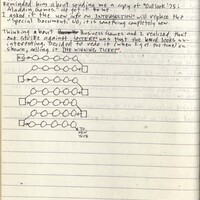 Reminded him about sending me a copy of "Outlook '75:
Aladdin Games." Ok get it to me
I asked if the new info on INTERNATIONAL will replace the
"Special Documents." No, it is something completely new
Thinking about business games and I realized that
one strike against was that the board looks un-
interesting. Decided to redo it (when I get the time) on
, calling it THE WINNING TICKET.